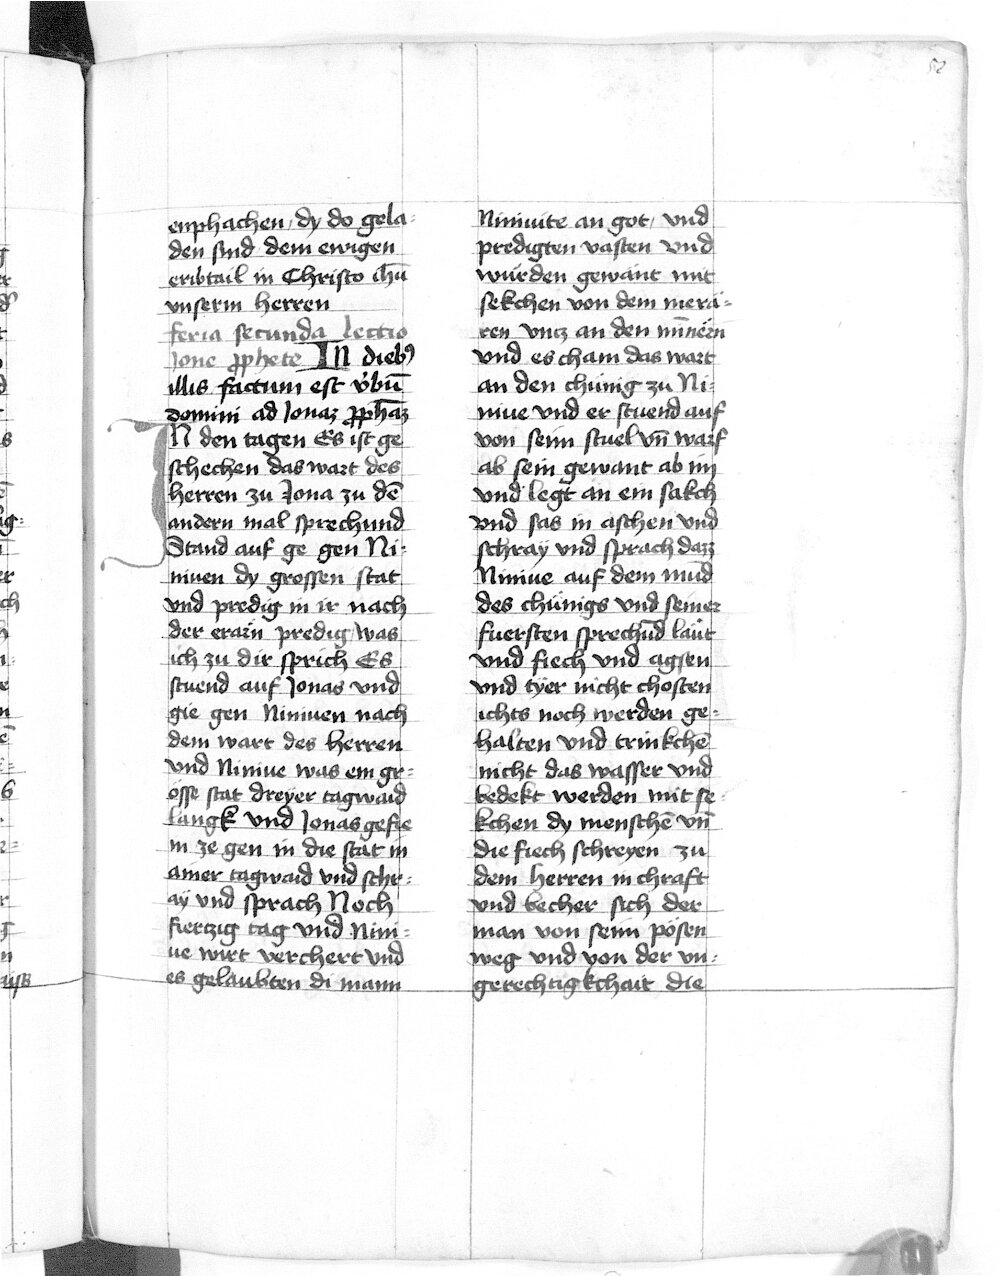 52
enphachen, dy do gela-
den sind dem ewigen
eribtail in Christo ih̅u
vnserm herren
feria secunda lectio
Jone ꝓphete IN dieb9
illis factum est v̉bu̅
domini ad Jonaz ꝓph̅az
IN den tagen Es ist ge
schechen das wart des
herren zu Jona zu de̅
andern mal sprechund
Stand auf ge gen Ni-
niuen dy grossen stat
vnd predig in ir nach
der erarn predig was
ich zu dir sprich Es
stuend auf Jonas vnd
gie gen Niniuen nach
dem wart des herren
vnd Niniue was ein gr-
össe stat dreyer tagwaid
langk vnd Jonas gefie
in ze gen in die stat in
ainer tagwaid vnd schr-
aÿ vnd sprach Noch
fiertzig tag vnd Nini-
ue wirt verchert vnd
es gelaubten di mann
Niniuite an got, vnd
predigten vasten vnd
wurden gewant mit
sekchen von dem mera-
ren vncz an den mi̅nern
vnd es cham das wart
an den chünig zu Ni-
niue vnd er stuend auf
von seim stuel vn̅ warf
ab sein gewant ab im
vnd legt an ein sakch
vnd sas in aschen vnd
schraÿ vnd sprach dazz
Niniue auf dem mu̅d
des chünigs vnd seiner
fuersten sprechu̅d laüt
vnd fiech vnd agsen
vnd tÿer nicht chosten
ichts noch werden ge-
halten vnd trinkche̅
nicht das wasser vnd
bedekt werden mit se-
kchen dy mensche̅ vn̅
die fiech schreyen zu
dem herren in chraft
vnd becher sich der
man von seim pösen
weg vnd von der vn-
gerechtigkchait die